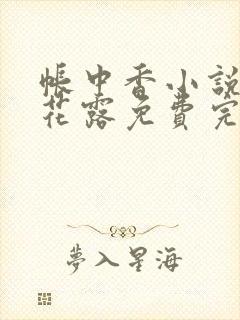 帳中香小說
花露免費完
夢入星海